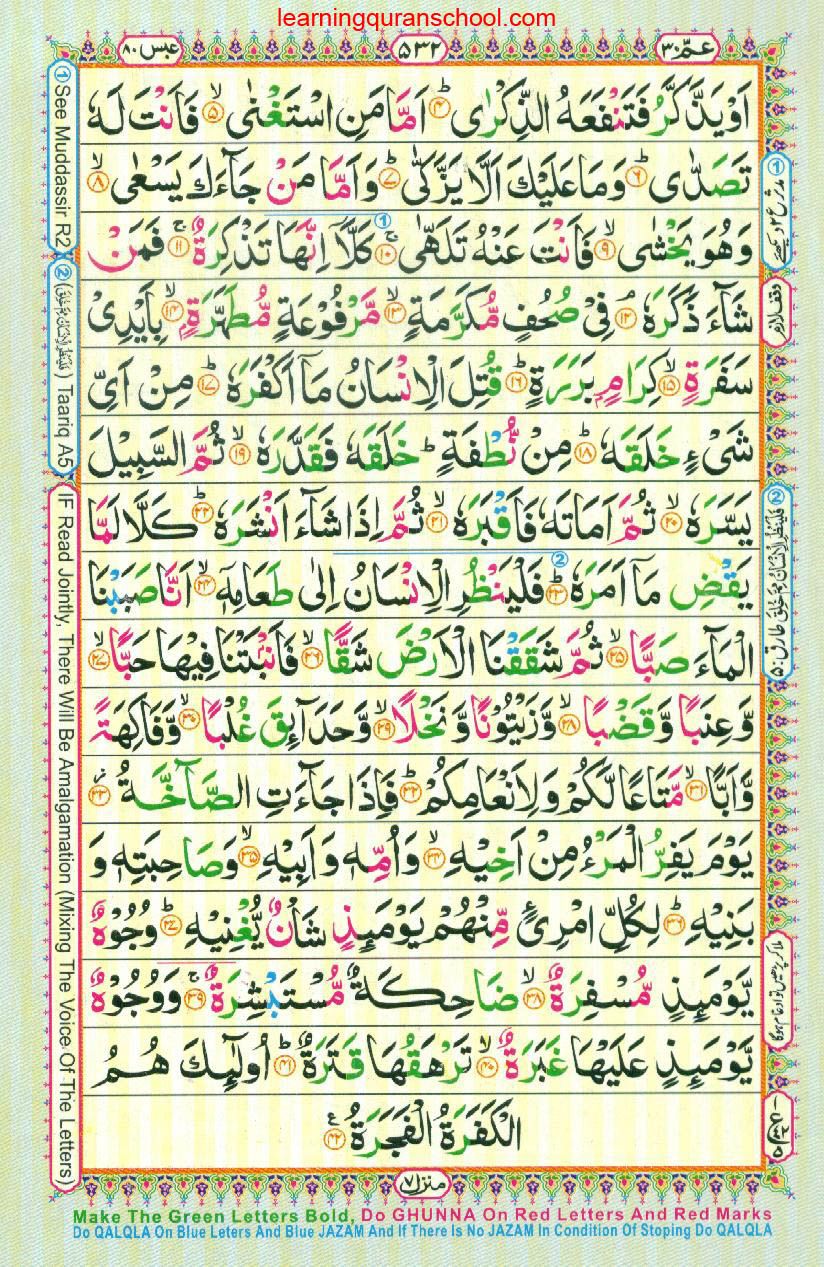 learningquranschool.com
عَمَّ ٣٠
٥٣٢
عبس ٨٠
اَوْ يَذَّكَّرُ فَتَنْفَعَهُ الذِّكْرٰى ؕ﴿۴﴾ اَمَّا مَنِ اسْتَغْنٰى ۙ﴿۵﴾ فَاَنْتَ لَهٗ
تَصَدّٰى ؕ﴿۶﴾ وَمَا عَلَيْكَ اَلَّا يَزَّكّٰى ؕ﴿۷﴾ وَاَمَّا مَنْ جَآءَكَ يَسْعٰى ۙ﴿۸﴾
وَهُوَ يَخْشٰى ۙ﴿۹﴾ فَاَنْتَ عَنْهُ تَلَهّٰى ۚ﴿۱۰﴾ كَلَّاۤ اِنَّهَا تَذْكِرَةٌ ۚ﴿۱۱﴾ فَمَنْ
شَآءَ ذَكَرَهٗ ۘ﴿۱۲﴾ فِىْ صُحُفٍ مُّكَرَّمَةٍ ۙ﴿۱۳﴾ مَّرْفُوْعَةٍ مُّطَهَّرَةٍۭ ۙ﴿۱۴﴾ بِاَيْدِىْ
سَفَرَةٍ ۙ﴿۱۵﴾ كِرَامٍۭ بَرَرَةٍ ؕ﴿۱۶﴾ قُتِلَ الْاِنْسَانُ مَاۤ اَكْفَرَهٗ ؕ﴿۱۷﴾ مِنْ اَىِّ
شَىْءٍ خَلَقَهٗ ؕ﴿۱۸﴾ مِنْ نُّطْفَةٍ ؕ خَلَقَهٗ فَقَدَّرَهٗ ۙ﴿۱۹﴾ ثُمَّ السَّبِيْلَ
يَسَّرَهٗ ۙ﴿۲۰﴾ ثُمَّ اَمَاتَهٗ فَاَقْبَرَهٗ ۙ﴿۲۱﴾ ثُمَّ اِذَا شَآءَ اَنْشَرَهٗ ؕ﴿۲۲﴾ كَلَّا لَمَّا
يَقْضِ مَاۤ اَمَرَهٗ ؕ﴿۲۳﴾ فَلْيَنْظُرِ الْاِنْسَانُ اِلٰى طَعَامِهٖۤ ۙ﴿۲۴﴾ اَنَّا صَبَبْنَا
الْمَآءَ صَبًّا ۙ﴿۲۵﴾ ثُمَّ شَقَقْنَا الْاَرْضَ شَقًّا ۙ﴿۲۶﴾ فَاَنْۢبَتْنَا فِيْهَا حَبًّا ۙ﴿۲۷﴾
وَّعِنَبًا وَّقَضْبًا ۙ﴿۲۸﴾ وَّزَيْتُوْنًا وَّنَخْلًا ۙ﴿۲۹﴾ وَّحَدَآئِقَ غُلْبًا ۙ﴿۳۰﴾ وَّفَاكِهَةً
وَّاَبًّا ۙ﴿۳۱﴾ مَّتَاعًا لَّكُمْ وَلِاَنْعَامِكُمْ ؕ﴿۳۲﴾ فَاِذَا جَآءَتِ الصَّآخَّةُ ۙ﴿۳۳﴾
يَوْمَ يَفِرُّ الْمَرْءُ مِنْ اَخِيْهِ ۙ﴿۳۴﴾ وَاُمِّهٖ وَاَبِيْهِ ۙ﴿۳۵﴾ وَصَاحِبَتِهٖ وَ
بَنِيْهِ ؕ﴿۳۶﴾ لِكُلِّ امْرِئٍ مِّنْهُمْ يَوْمَئِذٍ شَاْنٌ يُّغْنِيْهِ ؕ﴿۳۷﴾ وُجُوْهٌ
يَّوْمَئِذٍ مُّسْفِرَةٌ ۙ﴿۳۸﴾ ضَاحِكَةٌ مُّسْتَبْشِرَةٌ ۚ﴿۳۹﴾ وَوُجُوْهٌ
يَّوْمَئِذٍ عَلَيْهَا غَبَرَةٌ ۙ﴿۴۰﴾ تَرْهَقُهَا قَتَرَةٌ ؕ﴿۴۱﴾ اُولٰٓئِكَ هُمُ
الْكَفَرَةُ الْفَجَرَةُ ﴿۴۲﴾
① See Muddassir R2
② (فَلْيَنْظُرِ الْاِنْسَانُ مِمَّ خُلِقَ) Taariq A5
IF Read Jointly, There Will Be Amalgamation (Mixing The Voice Of The Letters)
وقف لازم
② فَلْيَنْظُرِ الْاِنْسَانُ مِمَّ خُلِقَ طارق ٥
منزل ٧
Make The Green Letters Bold, Do GHUNNA On Red Letters And Red Marks
Do QALQLA On Blue Leters And Blue JAZAM And If There Is No JAZAM In Condition Of Stoping Do QALQLA